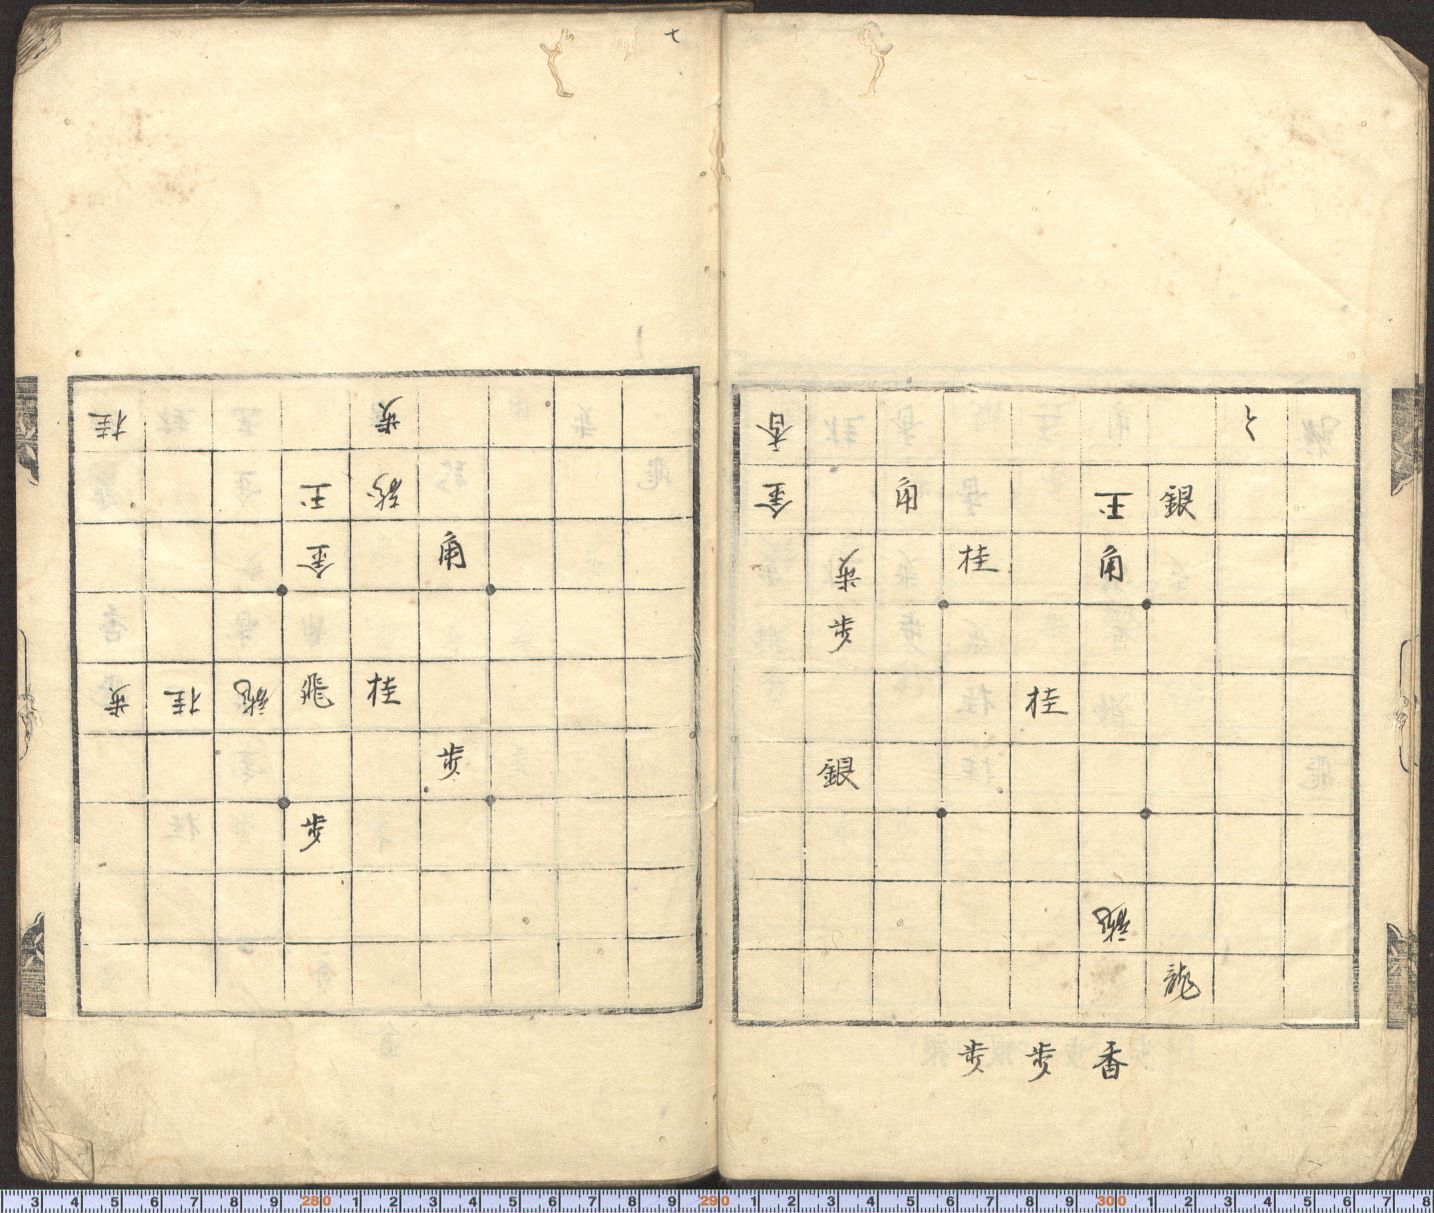 七
香
金 角 玉 銀
歩 桂 角
歩
桂
銀
龍
龍
歩 歩 香
桂 歩
玉
金 角
歩 桂 龍 飛 桂
歩
歩
3 4 5 6 7 8 9 280 1 2 3 4 5 6 7 8 9 290 1 2 3 4 5 6 7 8 9 300 1 2 3 4 5 6 7 8